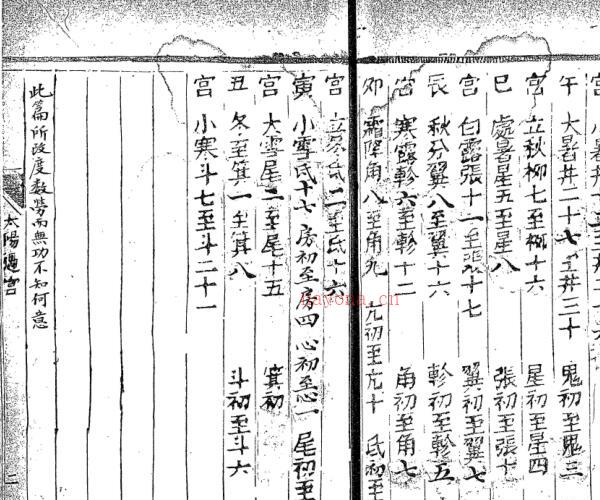 午 大暑井二十七至井三十 鬼初至鬼三
宫 立秋柳七至柳十六 星初至星四
巳 處暑星五至星八 張初至張十
宫 白露張十一至張十七 翼初至翼七
辰 秋分翼八至翼十六 軫初至軫五
宫 寒露軫六至軫十二 角初至角七
卯 霜降角八至角九 亢初至亢十 氐初至
宫 立冬氐二至氐十六
寅 小雪氐十七 房初至房四 心初至心一 尾初至
宫 大雪尾二至尾十五 箕初
丑 冬至箕一至箕八 斗初至斗六
宫 小寒斗七至斗二十一
此篇所改度数勞而無功不知何意
太陽過宮
二